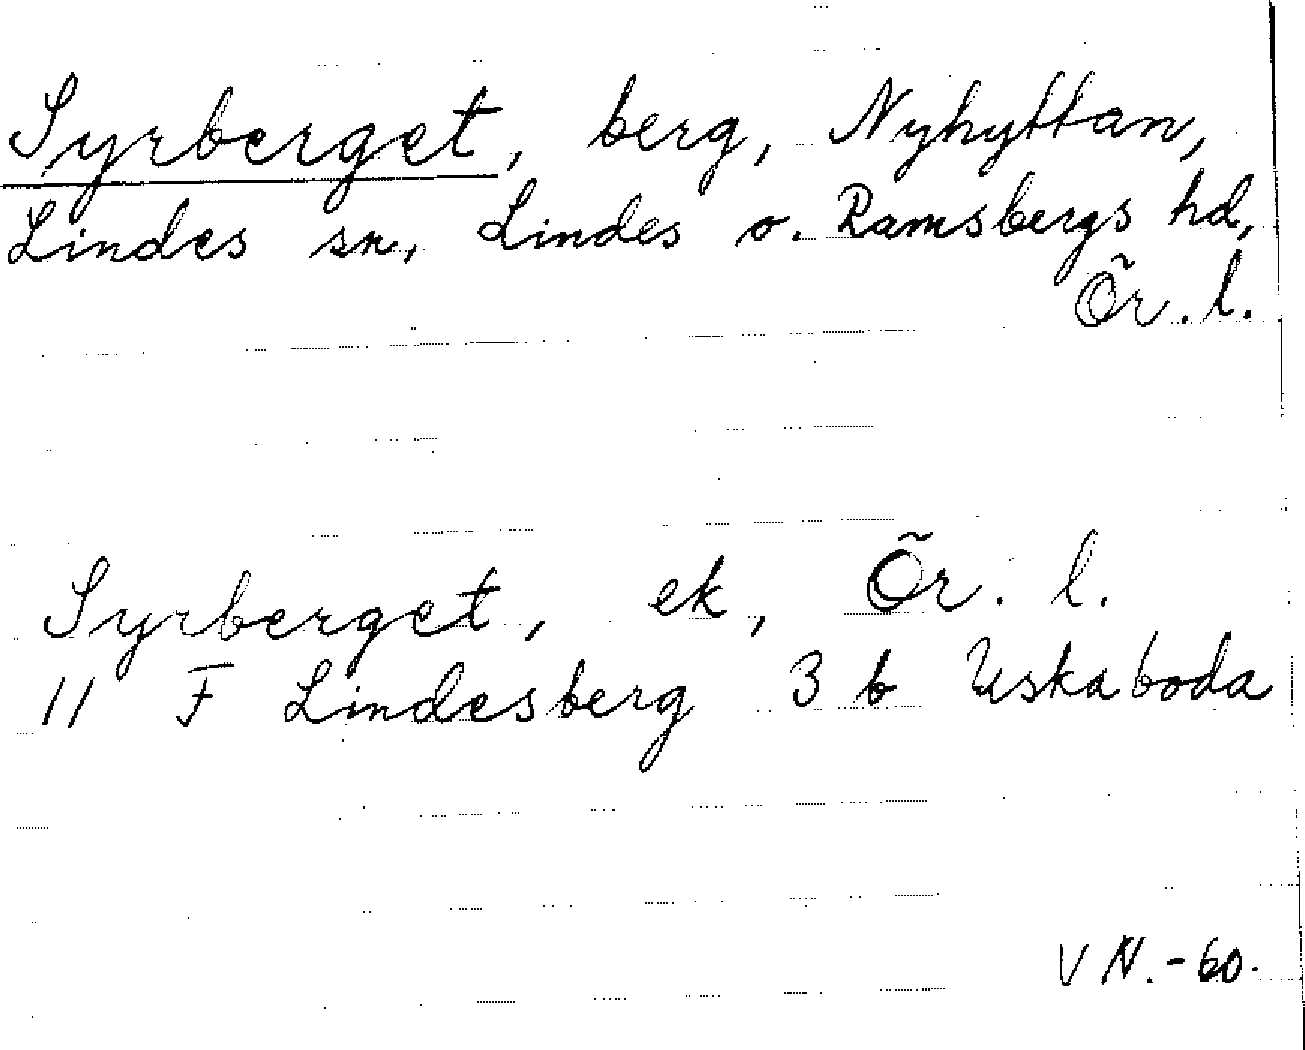 Syrberget, berg, Nyhyttan,
Lindes sn, Lindes o. Ramsbergs hd,
Ör. l.
Syrberget, ek, Ör. l.
11 F Lindesberg 3 b Uskaboda
V N. -60.